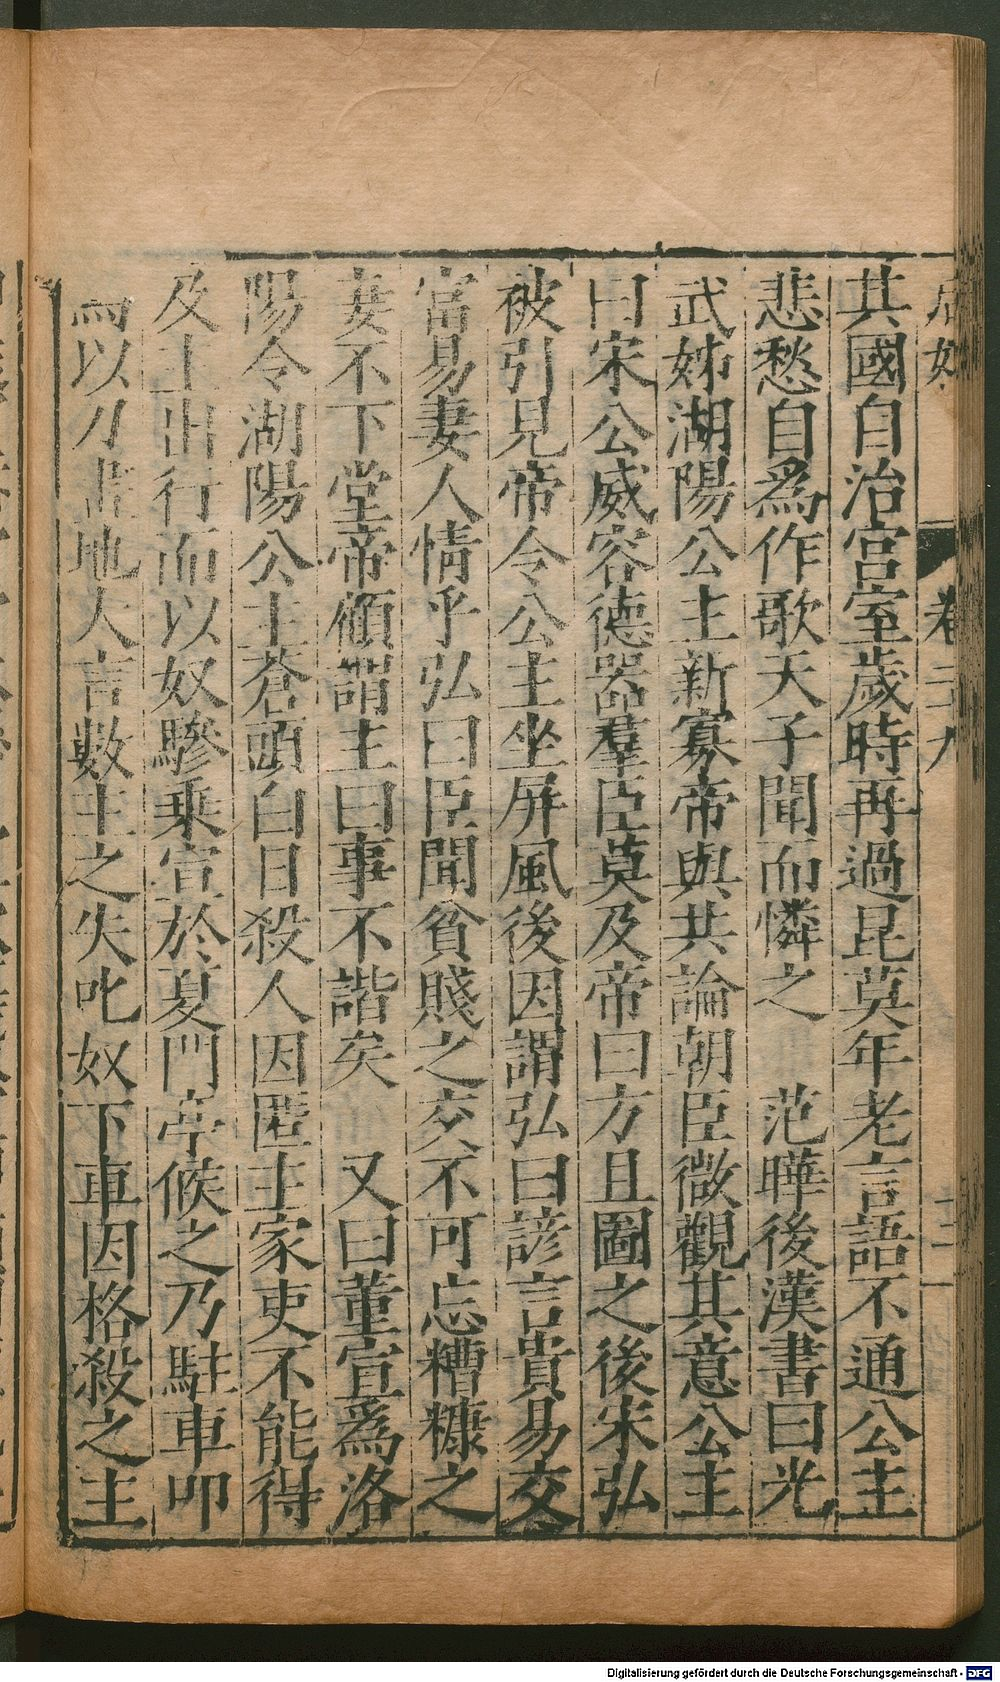 其國自治宮室歲時再過昆莫年老言語不通公主
悲愁自爲作歌天子聞而憐之　范曄後漢書曰光
武姊湖陽公主新寡帝與共論朝臣微觀其意公主
曰宋公威容德器羣臣莫及帝曰方且圖之後宋弘
被引見帝令公主坐屏風後因謂弘曰諺言貴易交
富易妻人情乎弘曰臣聞貧賤之交不可忘糟糠之
妻不下堂帝顧謂主曰事不諧矣　又曰董宣爲洛
陽令湖陽公主蒼頭白日殺人因匿主家吏不能得
及主出行而以奴驂乘宣於夏門亭候之乃駐車叩
馬以刀畫地大言數主之失叱奴下車因格殺之主
卷二九
Digitalisierung gefördert durch die Deutsche Forschungsgemeinschaft - DFG